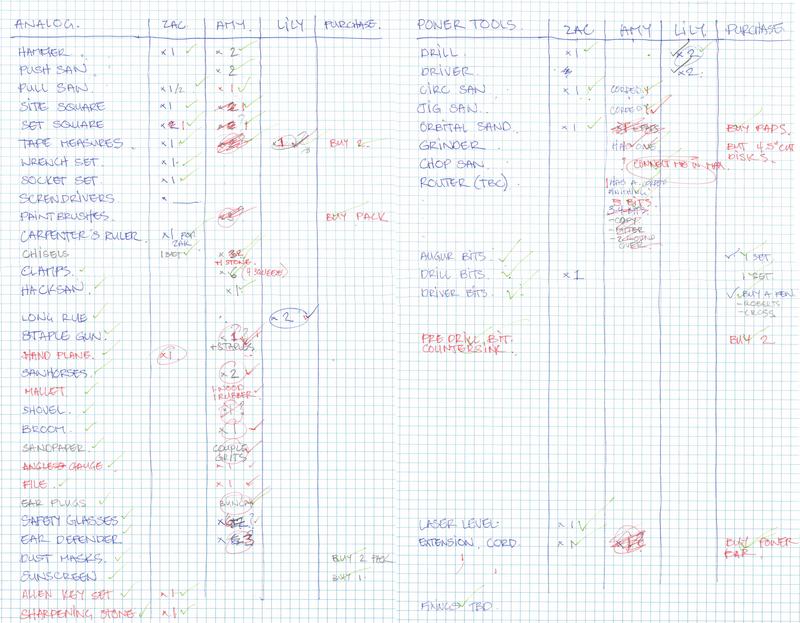 ANALOG. ZAC AMY. LILY PURCHASE.
HAMMER x1 x2
PUSH SAW x2
PULL SAW x1/2 x1
SITE SQUARE x1
SET SQUARE
TAPE MEASURES x1 x1 BUY 2.
WRENCH SET x1
SOCKET SET x1
SCREWDRIVERS x
PAINTBRUSHES. BUY PACK
CARPENTER'S RULER x1 FOR ZAK
CHISELS 1 SET
+1 STONE
CLAMPS. x6 (4 SQUEEZE)
HACKSAW x1
LONG RULE x2
STAPLE GUN. x1
+STAPLES
HAND PLANE. x1
SAWHORSES x2
MALLET 1 WOOD
1 RUBBER
SHOVEL. x1?
BROOM. x1
SANDPAPER. COUPLE GRITS
ANGLE GAUGE x1
FILE. x1
EAR PLUGS BUNCH
SAFETY GLASSES
EAR DEFENDER 3
DUST MASKS. BUY 2 PACK
SUNSCREEN BUY 1.
ALLEN KEY SET x1
SHARPENING STONE x1
POWER TOOLS. ZAC AMY LILY PURCHASE
DRILL. x1 x2
DRIVER. x2
CIRC SAW x1 CORDED
JIG SAW. CORDED
ORBITAL SAND. x1 BUY PADS.
GRINDER HAVE ONE BUY 4.5" CUT DISKS.
CHOP SAW.
ROUTER (TBC)
5 BITS
AUGUR BITS. 1 SET
DRILL BITS. x1 1 SET
DRIVER BITS. BUY A FEW
-ROBERTS
-CROSS
PRE DRILL BIT. BUY 2
COUNTERSINK.
LASER LEVEL. x1
EXTENSION CORD. BUY POWER BAR.
FIXINGS TBD.